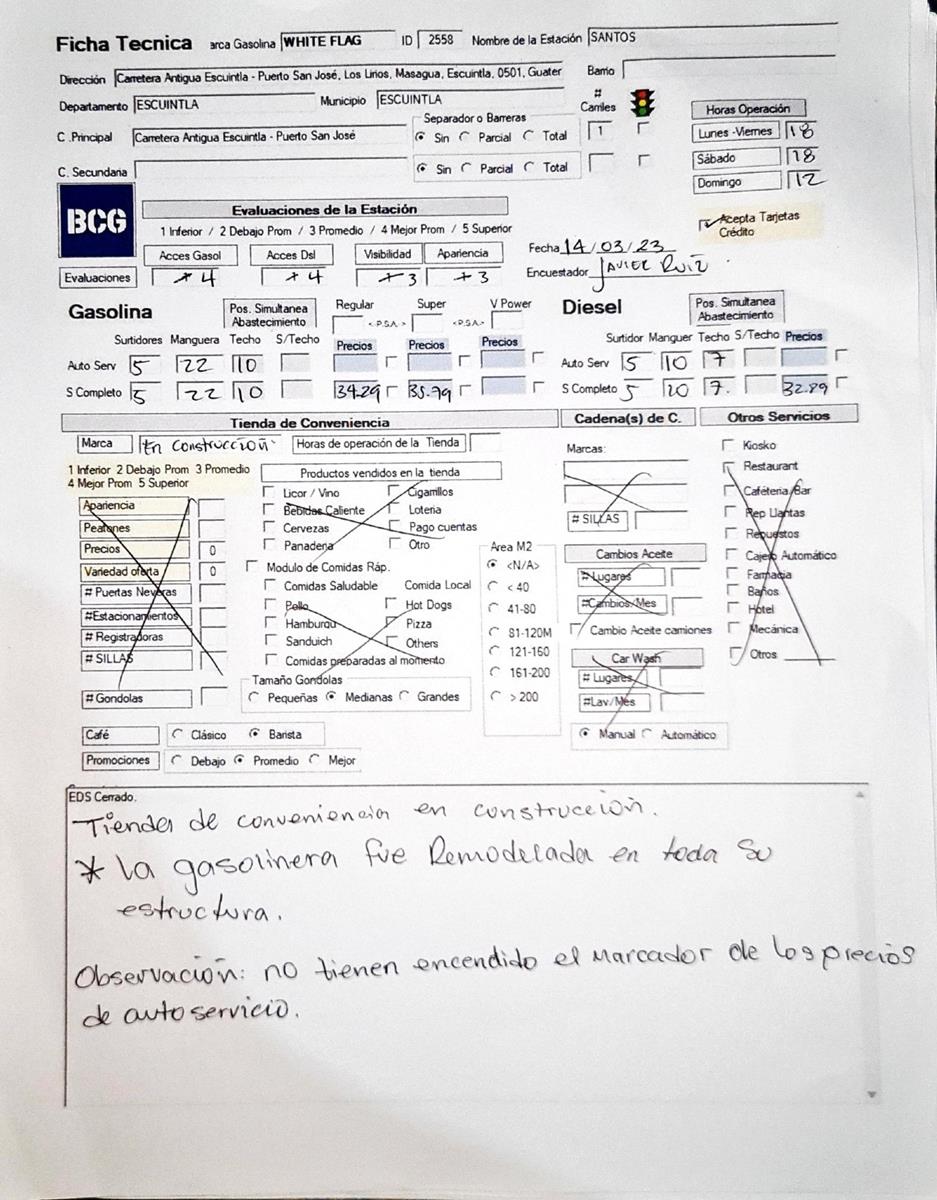 Ficha Tecnica arca Gasolina WHITE FLAG ID 2558 Nombre de la Estación SANTOS
Dirección Carretera Antigua Escuintla - Puerto San José, Los Lirios, Masagua, Escuintla, 0501, Guater Barrio
Departamento ESCUINTLA Municipio ESCUINTLA # Carriles Horas Operación
Separador o Barreras
C .Principal Carretera Antigua Escuintla - Puerto San José Sin Parcial Total 1 Lunes -Viernes 18
C. Secundaria Sin Parcial Total Sábado 18
Domingo 12
BCG
Evaluaciones de la Estación
Acepta Tarjetas Crédito
1 Inferior / 2 Debajo Prom / 3 Promedio / 4 Mejor Prom / 5 Superior
Acces Gasol Acces Dsl Visibilidad Apariencia Fecha 14/03/23
Evaluaciones + 4 + 4 + 3 + 3 Encuestador JAVIER RUIZ
Gasolina Pos. Simultanea Abastecimiento Regular Super V Power Diesel Pos. Simultanea Abastecimiento
<P.S.A.> <P.S.A.>
Surtidores Manguera Techo S/Techo Precios Precios Precios Surtidor Manguer Techo S/Techo Precios
Auto Serv 5 22 10 Auto Serv 5 10 7
S Completo 5 22 10 34.29 35.79 S Completo 5 20 7. 32.89
Tienda de Conveniencia Cadena(s) de C. Otros Servicios
Marca En construccion Horas de operación de la Tienda Marcas: Kiosko
1 Inferior 2 Debajo Prom 3 Promedio
4 Mejor Prom 5 Superior
Productos vendidos en la tienda Restaurant
Apariencia Licor / Vino Cigarrillos Cafétería/Bar
Peatones Bebidas Caliente Loteria # SILLAS Rep Llantas
Precios 0 Cervezas Pago cuentas Repuestos
Panaderia Otro Area M2 Cambios Aceite Cajero Automático
Variedad oferta 0 Modulo de Comidas Ráp. <N/A> #Lugares Farmacia
# Puertas Neveras Comidas Saludable Comida Local < 40 Baños
#Estacionamientos Pollo Hot Dogs 41-80 #Cambios/Mes Hotel
# Registradoras Hamburqu Pizza 81-120M Cambio Aceite camiones Mecánica
# SILLAS Sanduich Others 121-160 Car Wash Otros
Comidas preparadas al momento 161-200 # Lugares
Tamaño Gondolas
# Gondolas Pequeñas Medianas Grandes > 200 #Lav/Mes
Café Clásico Barista Manual Automático
Promociones Debajo Promedio Mejor
EDS Cerrado.
Tienda de conveniencia en construcción.
* la gasolinera fue Remodelada en toda su
estructura.
Observación: no tienen encendido el Marcador de los precios
de autoservicio.